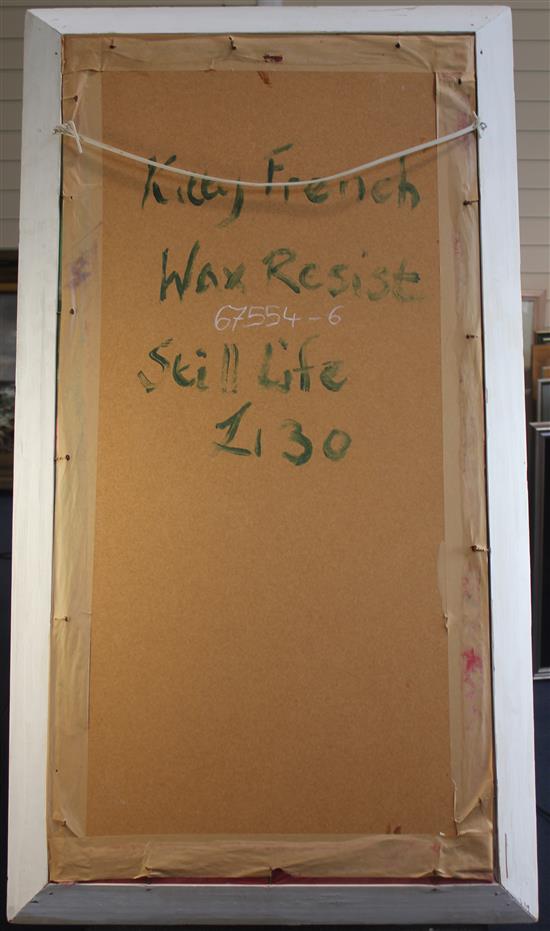 Kitty French
Wax Resist
67554-6
Still Life
£130